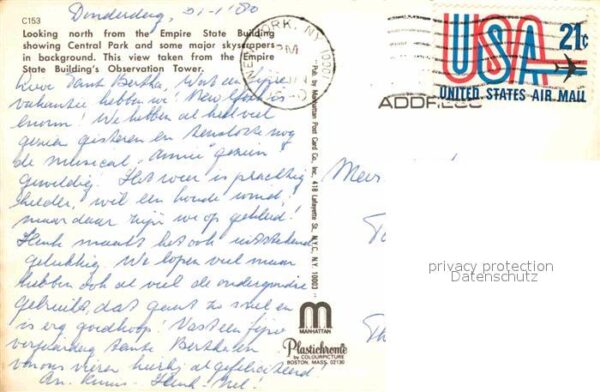 Donderdag, 31-1-'80
C153
Looking north from the Empire State Building
showing Central Park and some major skyscrapers
in background. This view taken from the Empire
State Building's Observation Tower.
Lieve Tante Bertha, Wat een fijne
vakantie hebben we! New York is
enorm! We hebben al heel veel
gezien gisteren en
de musical "Annie" gezien
geweldig. Het weer is prachtig
helder, wel een koude wind,
maar daar zijn we op gekleed!
Henk maakt het ook uitstekend
gelukkig. We lopen veel maar
hebben ook al veel de ondergrondse
gebruikt, dat gaat zo snel en
is erg goedkoop! Vast een fijne
verjaardag tante Bertha en
van ons vieren hierbij al gefeliciteerd
An. Henk
NEW YORK, N.Y. 1000
PM
USA 21c
UNITED STATES AIR MAIL
ADDRESS
Pub. by Manhattan Post Card Co. Inc. 418 Lafayette St., N.Y.C. N.Y. 10003
Mevr
privacy protection
Datenschutz
m
MANHATTAN
Plastichrome
by COLOURPICTURE
BOSTON, MASS. 02130